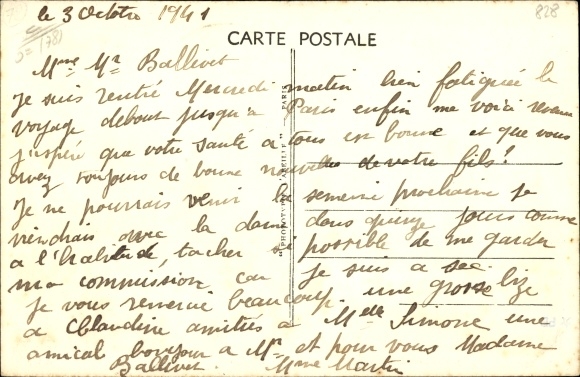 le 3 Octobre 1941
828
CARTE POSTALE
Mme Mr Ballivet
Je suis rentré Mercredi matin bien fatiguée le
voyage debout jusqu'a Paris enfin me voici revenue
j'espère que votre santé a tous est bonne et que vous
avez toujours de bonne nouvelles de votre fils!
Je ne pourrais venir la semeine prochaine je
viendrais avec la dame dans quinze jours comme
a l'habitude, tacher si possible de me garder
ma commission car je suis a sec
je vous remercie beaucoup une grosse bize
a Claudine amitiés a Melle Simone une
amical bonjour a Mr et pour vous Madame
Ballivet Mme Martin
PARIS